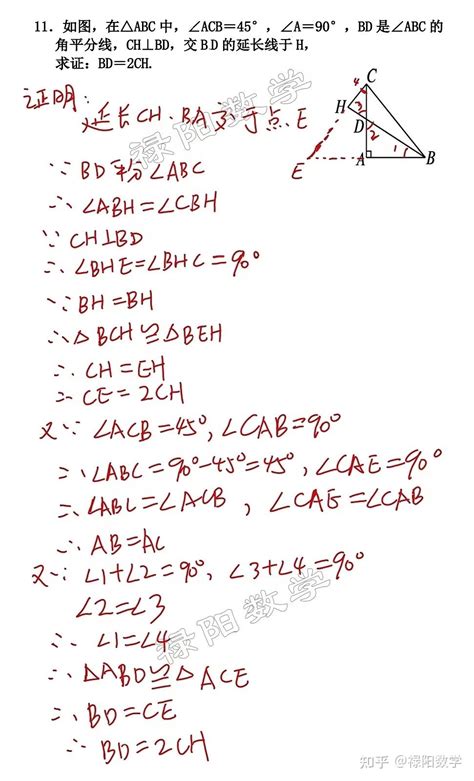 11. 如图，在△ABC 中，∠ACB＝45°，∠A＝90°，BD 是∠ABC 的
角平分线，CH⊥BD，交 BD 的延长线于 H，
求证：BD＝2CH.
证明：
延长CH、BA交于点E
∵ BD平分∠ABC
∴ ∠ABH=∠CBH
∵ CH⊥BD
∴ ∠BHE=∠BHC=90°
∵ BH=BH
∴ △BCH≌△BEH
∴ CH=EH
∴ CE=2CH
又∵ ∠ACB=45°, ∠CAB=90°
∴ ∠ABC=90°-45°=45°, ∠CAE=90°
∴ ∠ABC=∠ACB, ∠CAE=∠CAB
∴ AB=AC
又∵ ∠1+∠2=90°, ∠3+∠4=90°
∠2=∠3
∴ ∠1=∠4
∴ △ABD≌△ACE
∴ BD=CE
∴ BD=2CH
C
4
3
H
D
2
E
A
1
B
禄阳数学
禄阳数学
知乎 @禄阳数学